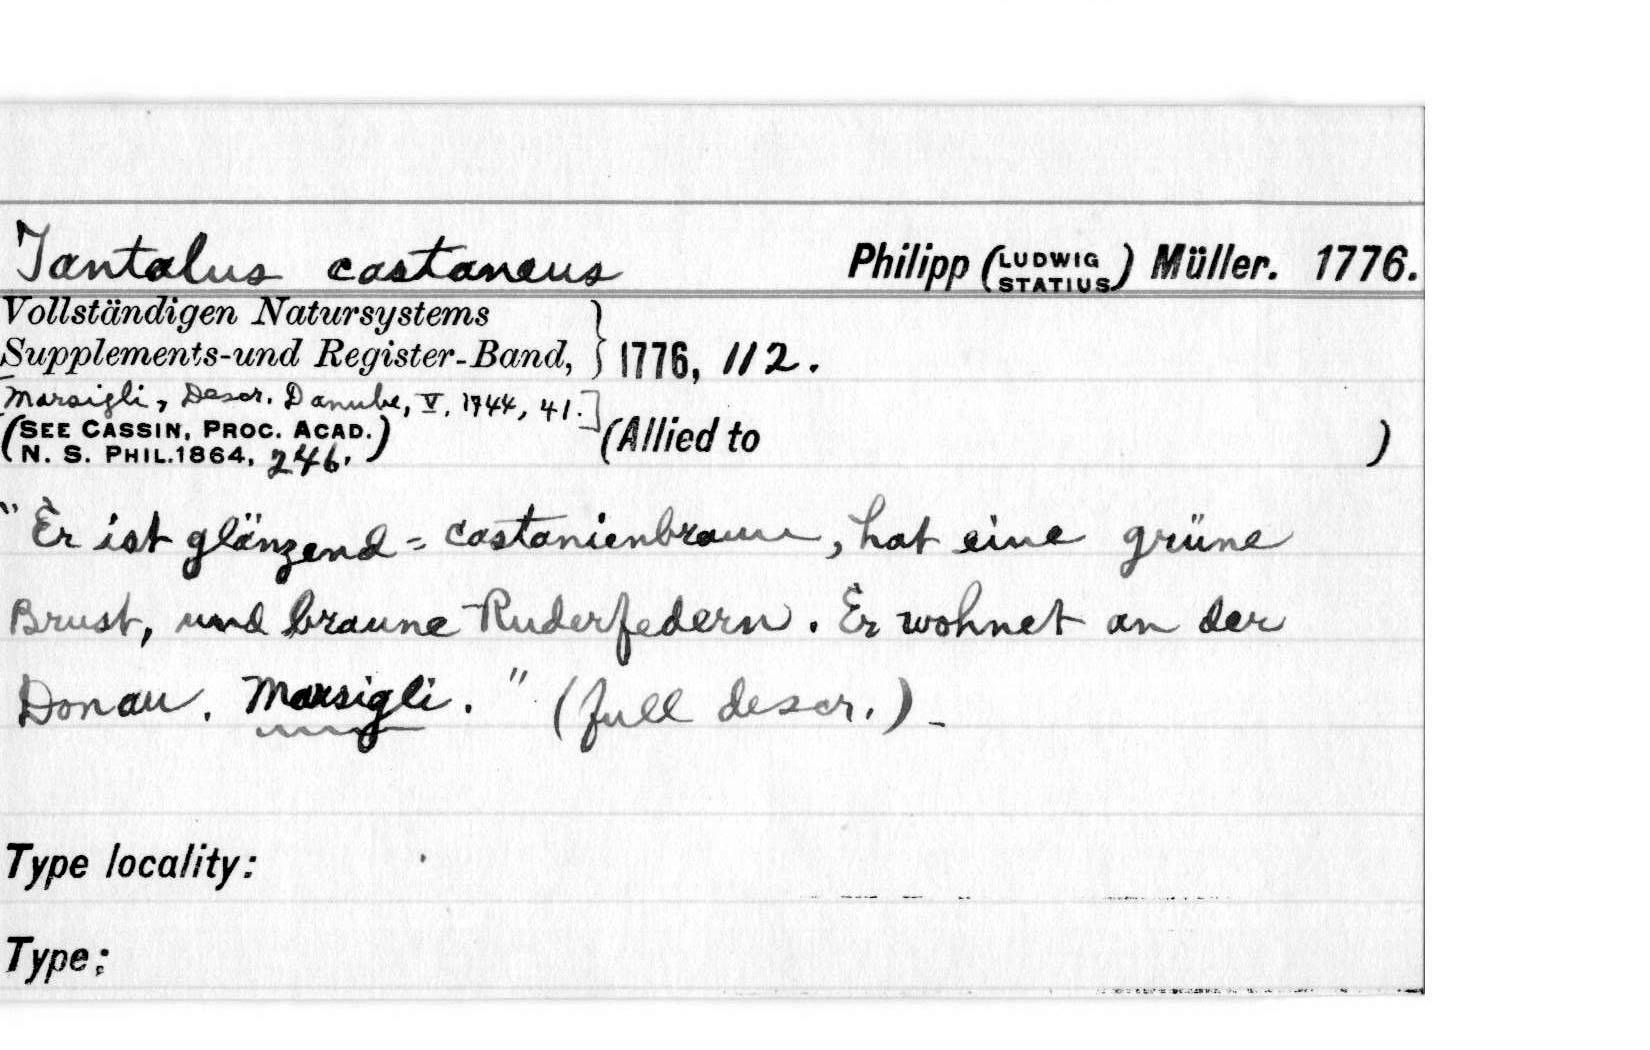 Tantalus castaneus Philipp (LUDWIG STATIUS) Müller. 1776.
Vollständigen Natursystems
Supplements-und Register-Band, } 1776, 112.
[Marsigli, Descr. Danube, V, 1744, 41.]
(SEE CASSIN, PROC. ACAD.
N. S. PHIL. 1864, 246.) (Allied to )
"Er ist glänzend = castanienbraun, hat eine grüne
Brust, und braune Ruderfedern. Er wohnet an der
Donau. Marsigli." (full descr.) -
Type locality:
Type: